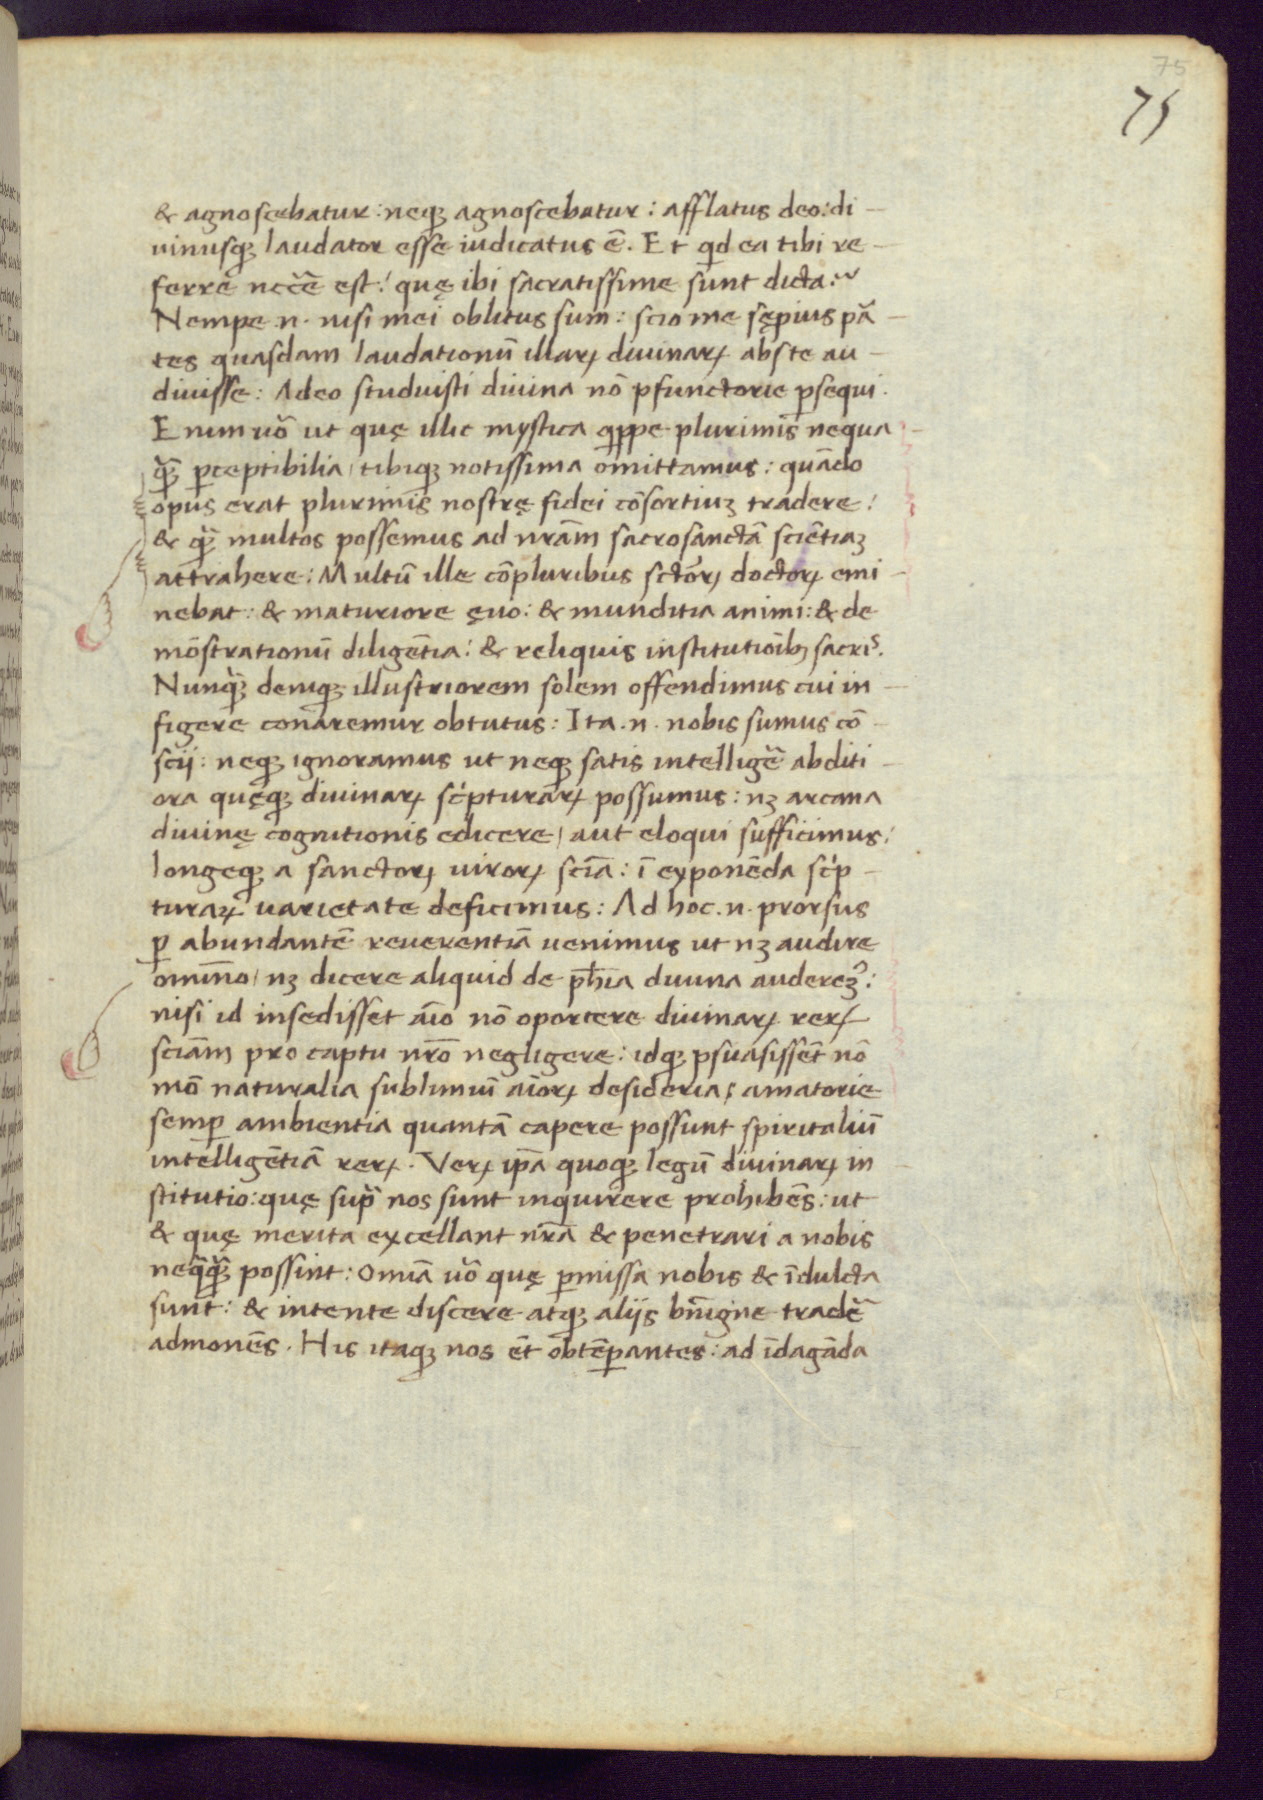 75
75
& agnoscebatur: neqꝫ agnoscebatur: afflatus deo: di-
uinusqꝫ laudator esse iudicatus ē. Et qid ea tibi re-
ferre nccē est! quę ibi sacratissime sunt dicta?
Nempe .n. nisi mei oblitus sum: scio me sępius pā-
tes quasdam laudationū illaꝝ diuinaꝝ abste au-
diuisse: Adeo studuisti diuina nō pfunctorie ꝑsequi.
Enim uō ut quę illic mystica qippe plurimis nequa-
qꝫ̃ ꝑceptibilia / tibiqꝫ notissima omittamus: quādo
opus erat plurimis nostrę fidei cōsortiuꝫ tradere!
& qꝫ̃ multos possemus ad nr̄am sacrosanctā sciētiaꝫ
attrahere: Multū ille cōpluribus sctōꝝ doctoꝝ emi-
nebat: & maturiore ęuo: & munditia animi: & de
mōstrationū diligētia: & reliquis institutiōibꝫ sacris.
Nunqꝫ̃ deniqꝫ illustriorem solem offendimus cui in-
figere conaremur obtutus: Ita .n. nobis sumus cō-
scii: neqꝫ ignoramus ut neqꝫ satis intelligē abditi-
ora quęqꝫ diuinaꝝ sc̄pturaꝝ possumus: nꝫ arcana
diuinę cognitionis edicere / aut eloqui sufficimus:
longeqꝫ a sanctoꝝ uiroꝝ scīa: ī exponēda sc̄p-
turaꝝ uarietate deficimus: Ad hoc .n. prorsus
ꝑ abundantē reuerentiā uenimus ut nꝫ audire
omnino / nꝫ dicere aliquid de ph̄ia diuina auderemꝰ:
nisi id insedisset aīo nō oportere diuinaꝝ reꝝ
sciām pro captu nr̄o negligere: idqꝫ ꝑsuasissēt nō
mō naturalia sublimiū aīoꝝ desideria; amatorie
semꝑ ambientia quantā capere possunt spiritaliū
intelligētiā reꝝ. Veꝝ ip̄a quoqꝫ legū diuinaꝝ in
stitutio: quę sup̄ nos sunt inquirere prohibēs: ut
& quę merita excellant nr̄a & penetrari a nobis
neqqꝫ̃ possint: omīa uō quę ꝑmissa nobis & īdulcta
sunt: & intente discere atqꝫ aliis bn̄igne tradē
admonēs. His itaqꝫ nos ēt obtēꝑantes: ad īdagāda